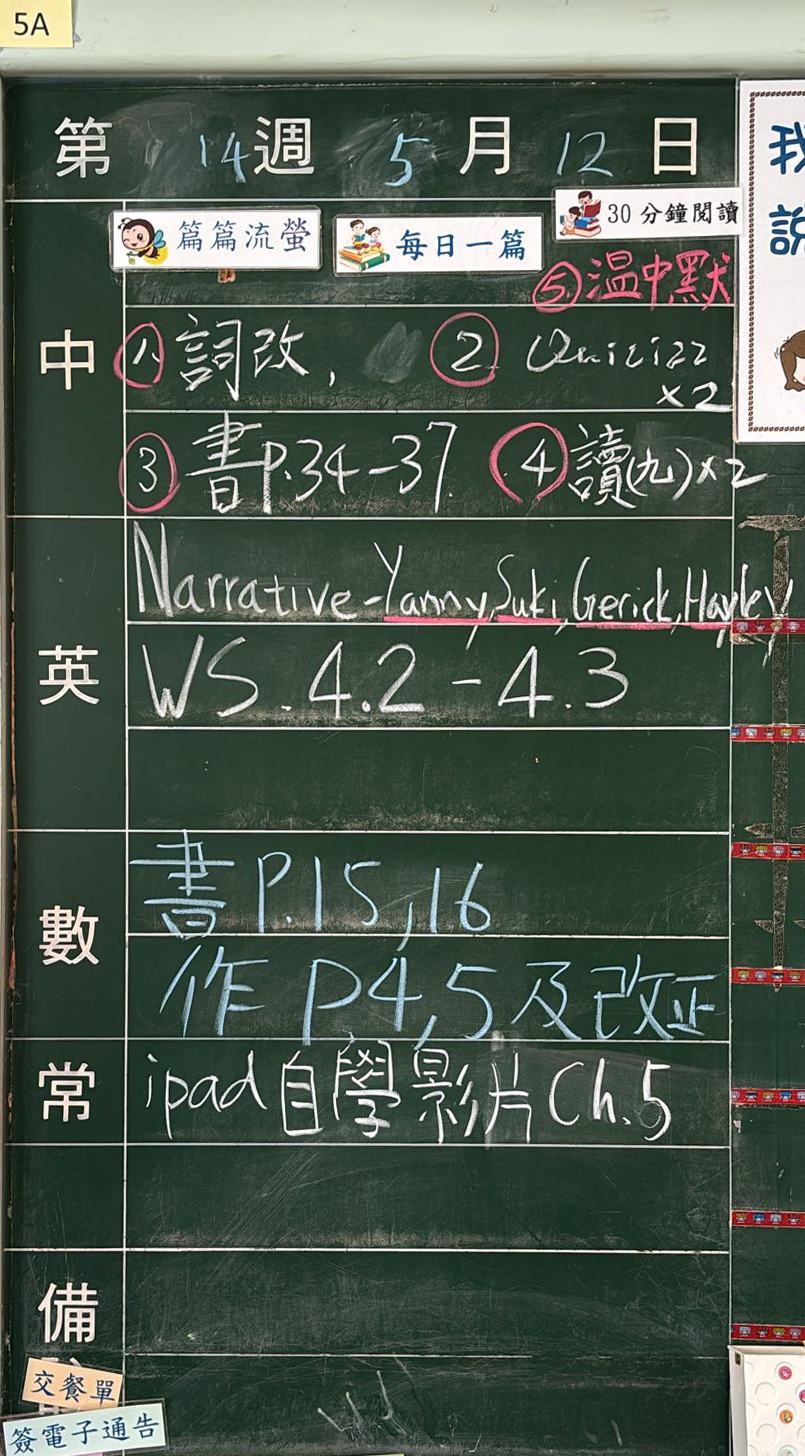 5A
第 14 週 5 月 12 日
篇篇流螢 每日一篇 30分鐘閱讀
⑤温中默
中
①詞改, ② Quizizz
×2
③書P.34-37 ④讀(九)×2
英
Narrative-Yanny,Suki,Gerick,Hayley
WS.4.2-4.3
數
書P.15,16
作P4,5及改正
常
ipad自學影片Ch.5
備
交餐單
簽電子通告
我
說